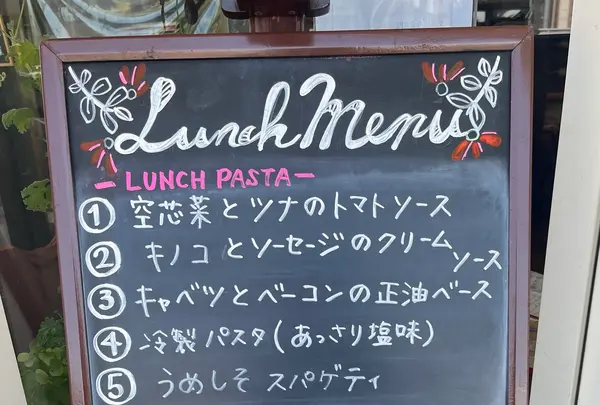 Lunch Menu
- LUNCH PASTA -
① 空芯菜とツナのトマトソース
② キノコとソーセージのクリーム
ソース
③ キャベツとベーコンの正油ベース
④ 冷製パスタ(あっさり塩味)
⑤ うめしそスパゲティ